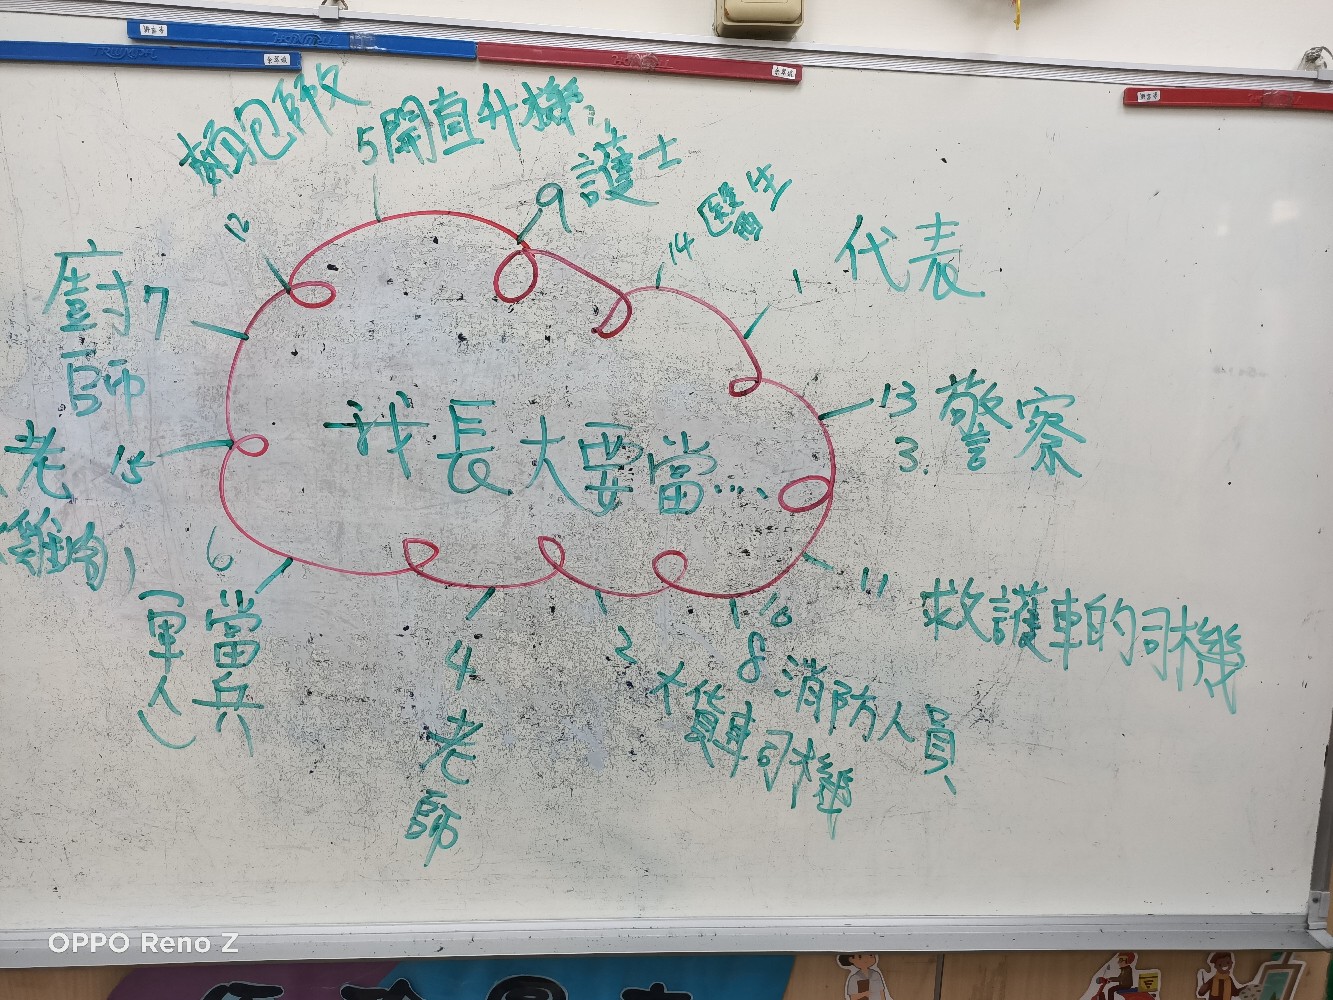 麵包師父
12
5開直升機
9護士
14醫生
1
代表
廚師
7
13
3.
警察
我長大要當...
老
15
雞
6
當兵
軍人
4
老師
2
大貨車司機
10
8消防人員、
11
救護車的司機
OPPO Reno Z